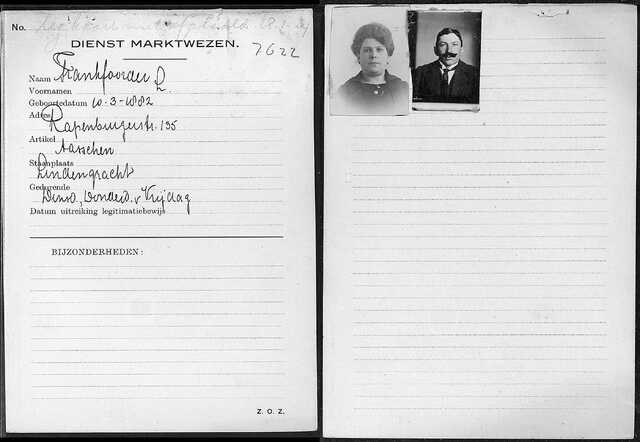 No.
DIENST MARKTWEZEN.
7622
Naam Frankfoorder L.
Voornamen
Geboortedatum 10-3-1882
Adres Rapenburgerstr. 195
Artikel Tasschen
Staanplaats Lindengracht
Gedurende Dinsd, Donderd. v Vrijdag
Datum uitreiking legitimatiebewijs
BIJZONDERHEDEN:
Z. O. Z.